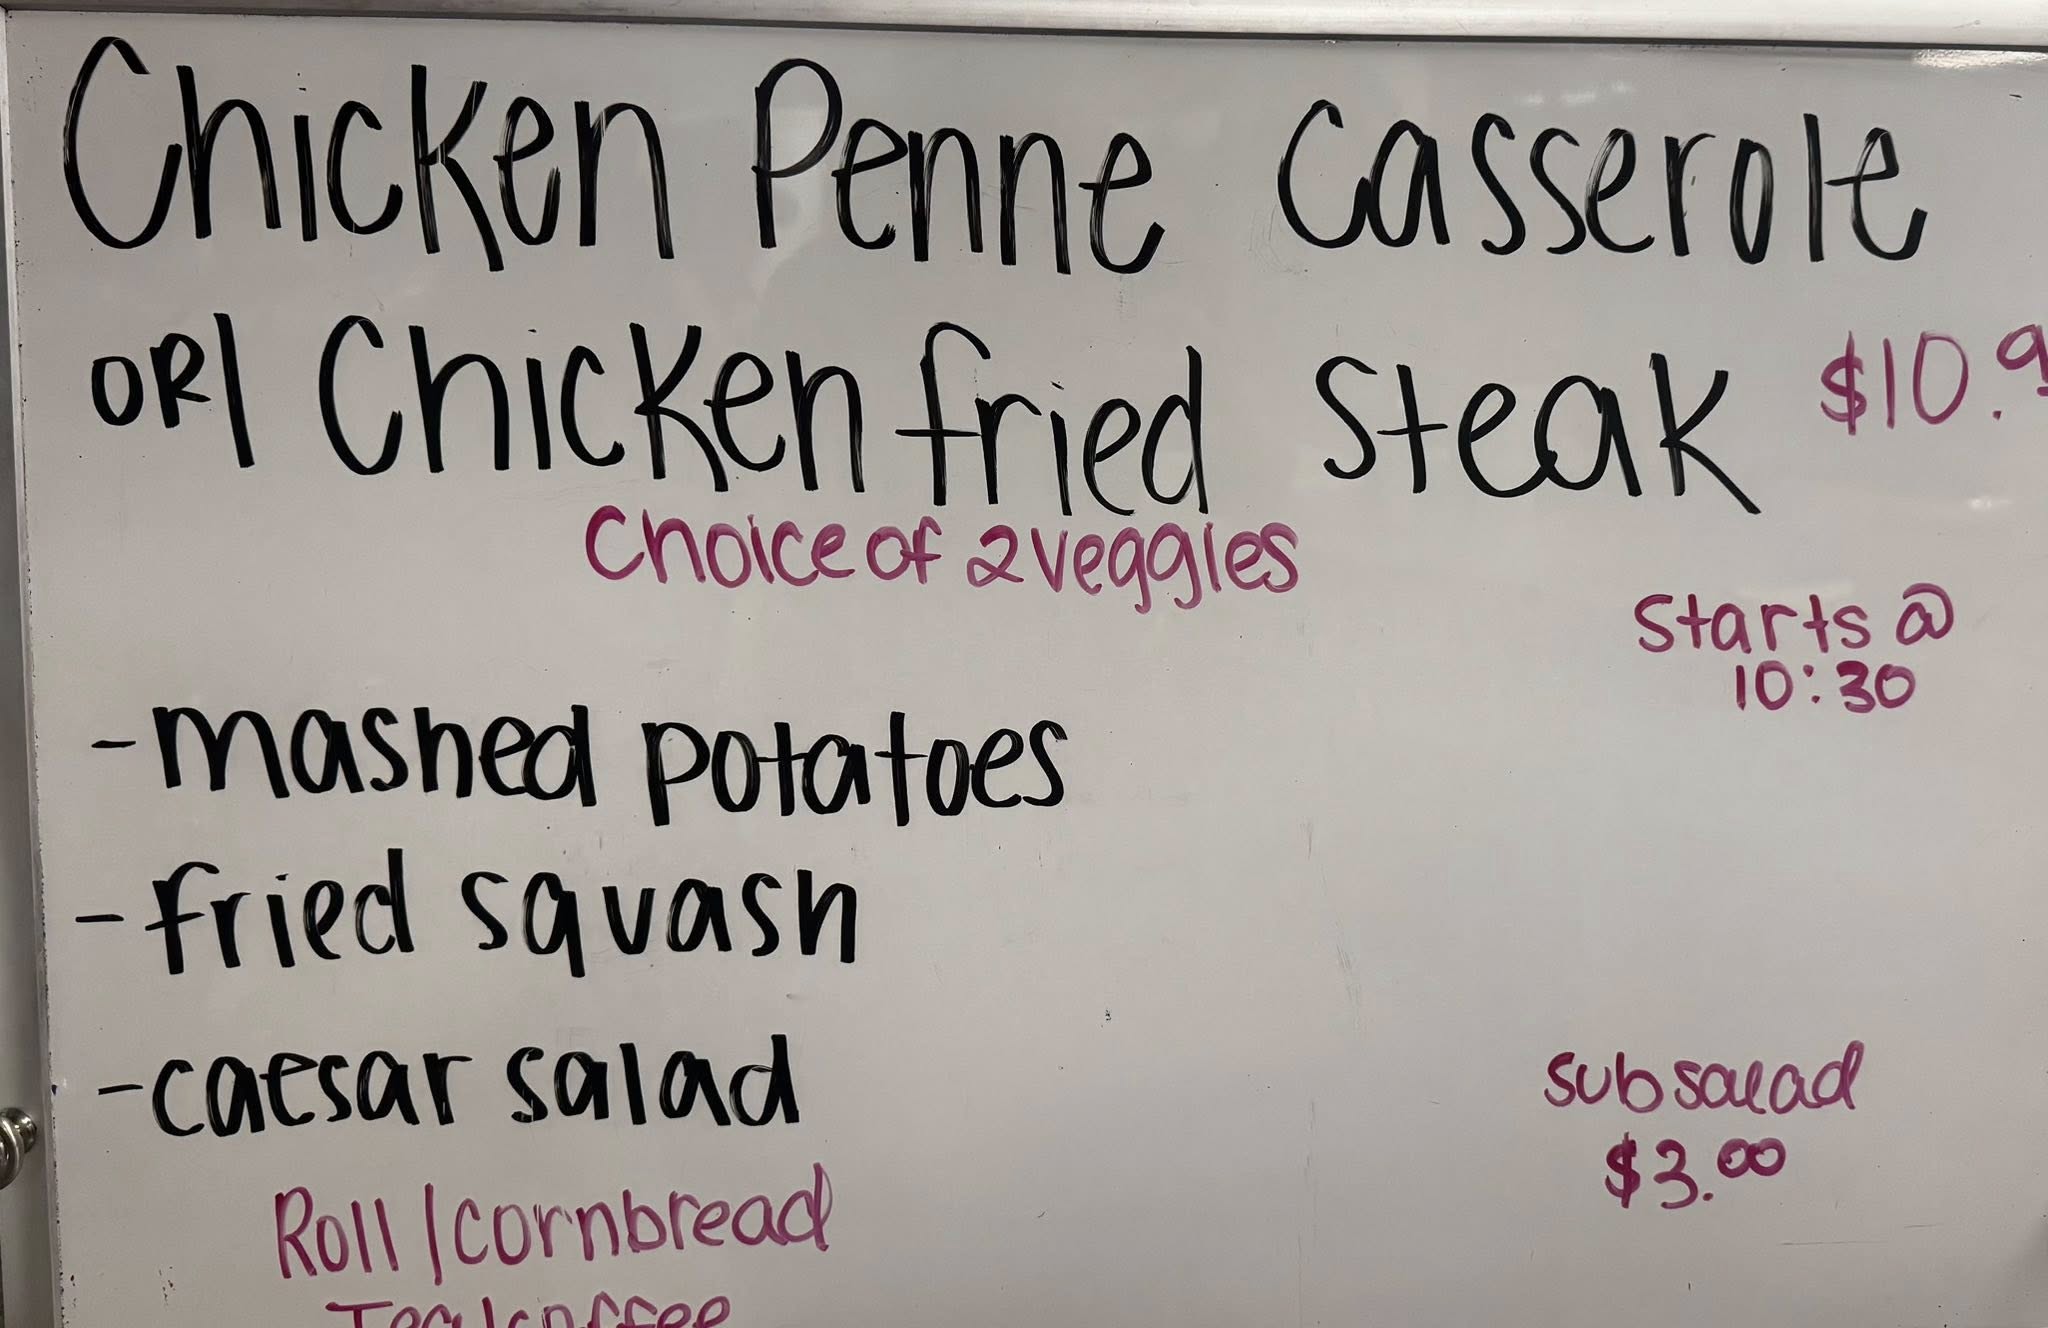 Chicken Penne Casserole
OR/ Chicken fried Steak $10.9
Choice of 2 veggies
Starts @
10:30
- mashed potatoes
- fried squash
- caesar salad
sub salad
$3.00
Roll/cornbread
Tea/coffee